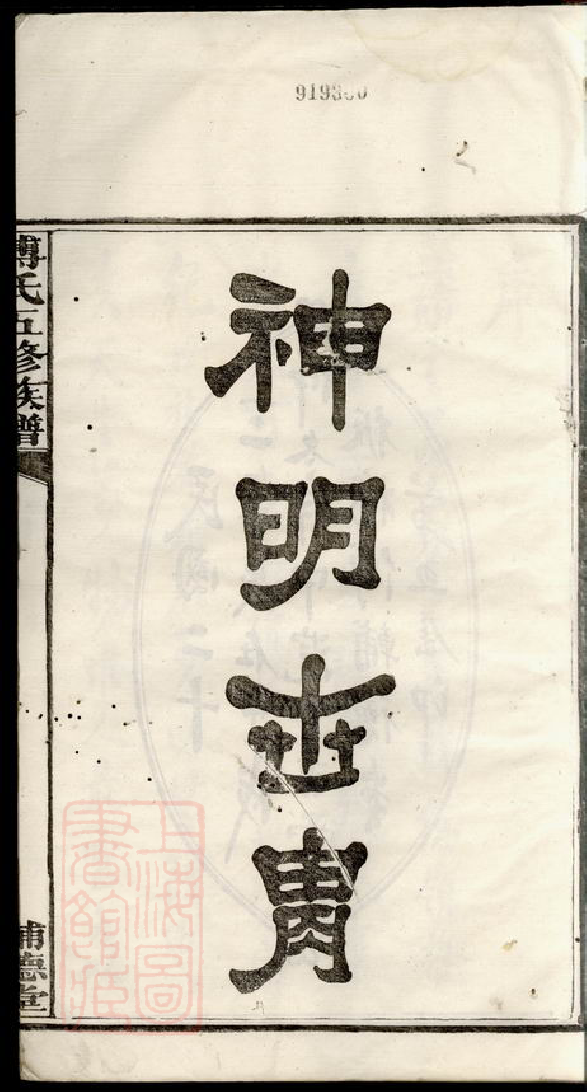 神明世胄
傅氏五修族譜
輔德堂
上海圖
書館藏